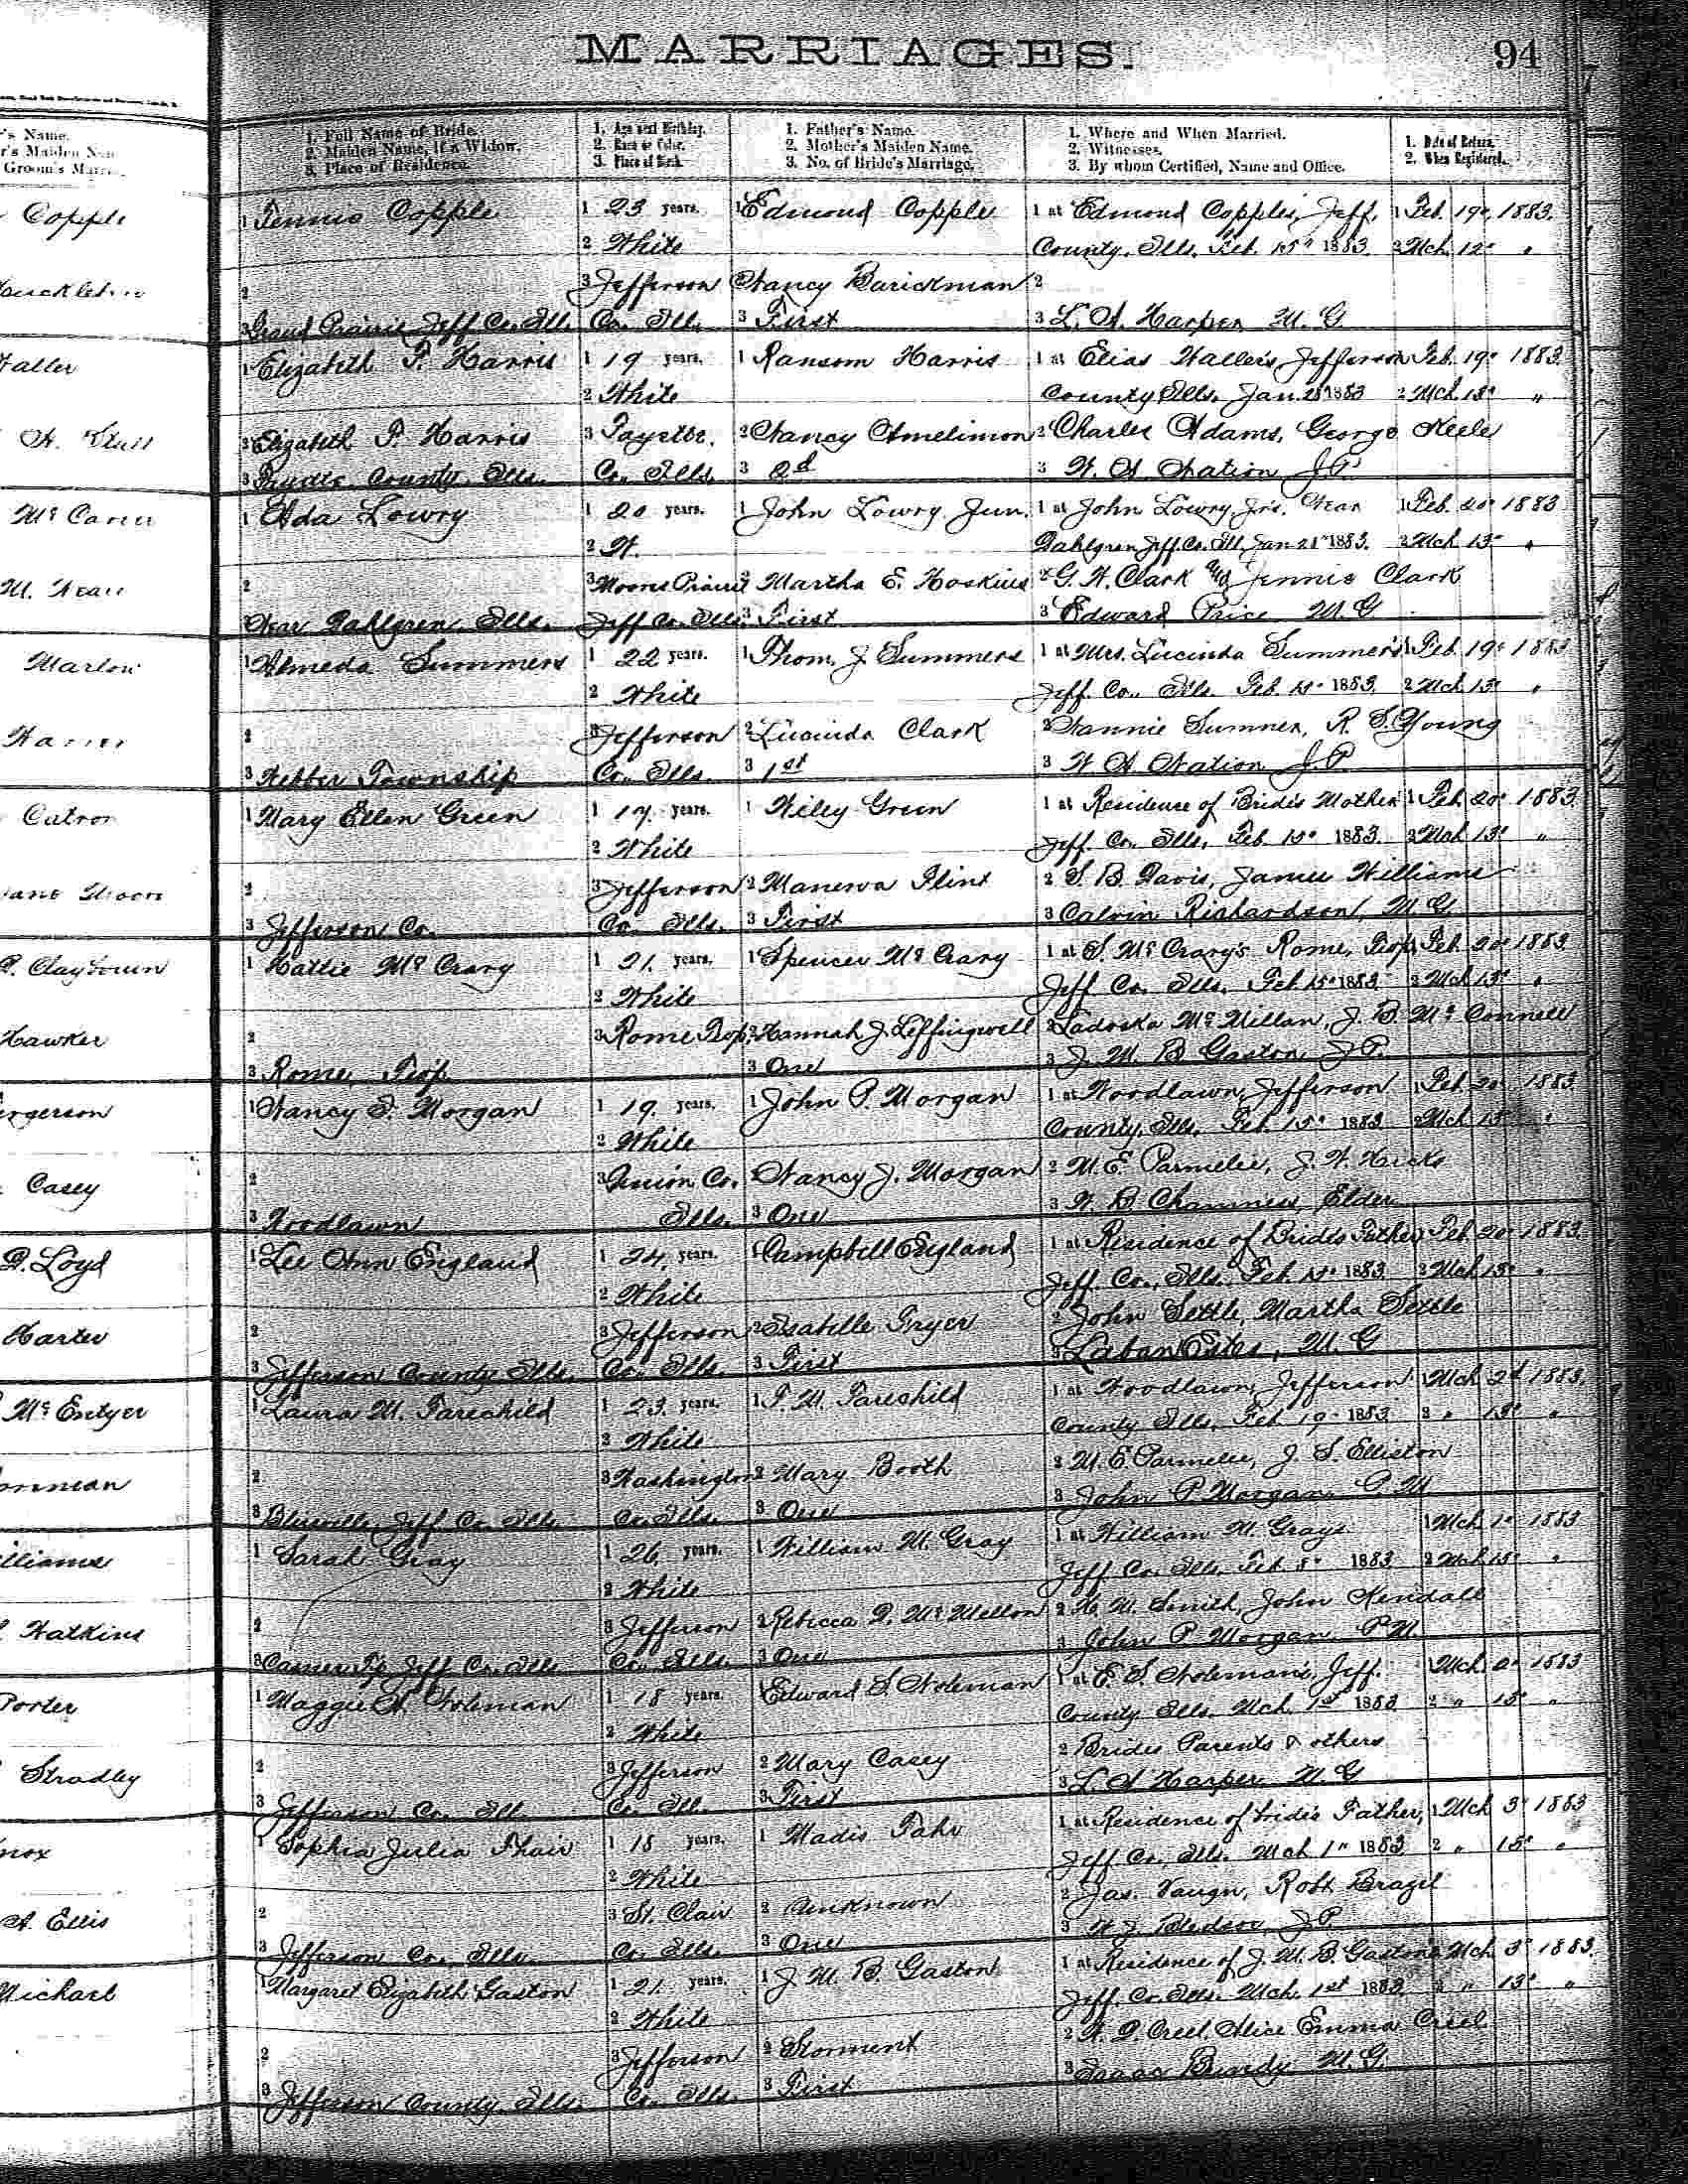 MARRIAGES.
94
's Name.
r's Maiden
Groom's
1. Full Name of Bride.
2. Maiden Name, if a Widow.
3. Place of Residence.
1. Age and Birthday.
2. Race or Color.
3. Place of Birth.
1. Father's Name.
2. Mother's Maiden Name.
3. No. of Bride's Marriage.
1. Where and When Married.
2. Witnesses.
3. By whom Certified, Name and Office.
1. Date of Return.
2. When Registered.
Copple
1 Tennie Copple 1 23 years. 1 Edmond Copple 1 at Edmond Copples, Jeff. 1 Feb. 19" 1883.
2 White County, Ills. Feb. 15" 1883. 2 Mch 12" "
2 3 Jefferson 2 Nancy Barickman 2
3 Grand Prairie Jeff Co. Ill. Co. Ills. 3 First 3 L. A. Harper M. G
1 Elizabeth P. Harris 1 19 years. 1 Ransom Harris 1 at Elias Waller's, Jefferson Feb. 19" 1883.
2 White County Ills. Jan. 1883 2 Mch. 13" "
3 Elizabeth P. Harris 3 Fayette, 2 Nancy 2 Charles Adams, George Keele
3 Fayette County, Ills. Co. Ills. 3 2d 3 W. A. Nation J.P.
1 Ada Lowry 1 20 years. 1 John Lowry Jun. 1 at John Lowry Jr's. Near 1 Feb. 20" 1883
2 W. Dahlgren Jeff. Co. Ill. Jan 21" 1883. 2 Mch 13" "
2 3 Moores Prairie 2 Martha E. Hoskins 2 G. W. Clark & Jennie Clark
Near Dahlgren, Ills. Jeff Co. Ills. 3 First 3 Edward Price M. G
Marlow
1 Almeda Summers 1 22 years. 1 Thom. J Summers 1 at Mrs. Lucinda Summer's 1 Feb. 19" 1883
2 White Jeff. Co., Ills. Feb. 15" 1883. 2 Mch 13" "
2 3 Jefferson 2 Lucinda Clark 2 Nannie Summer, R. S. Young
3 Webber Township Co. Ills. 3 1st 3 W A Nation J.P.
Catron
1 Mary Ellen Green 1 17. years. 1 Wiley Green 1 at Residence of Bride's Mother 1 Feb. 20" 1883.
2 White Jeff. Co. Ills. Feb. 15" 1883. 2 Mch 13" "
2 3 Jefferson 2 Manerva Flint 2 S. B. Davis, James Williams
3 Jefferson Co. Co. Ills. 3 First 3 Calvin Richardson, M. G.
Claybourn
1 Hattie McCrary 1 21. years. 1 Spencer McCrary 1 at S. McCrary's Rome, Feb. 20" 1883.
2 White Jeff Co. Ills. Feb 15" 1883. 2 Mch 13" "
Hawker
2 3 Rome 2 Hannah J. Leffingwell 2 Ladoska McMillan, J. B. McConnell
3 Rome, 3 One 3 J. M. B Gaston, J. P.
1 Nancy S. Morgan 1 19. years. 1 John P. Morgan 1 at Woodlawn, Jefferson 1 Feb. 20" 1883.
2 White County, Ills. Feb. 15" 1883. 2 Mch 13" "
Casey
2 3 Union Co. Nancy J. Morgan 2 M. E Parmelie, J. W. Hicks
3 Woodlawn Ills. 3 One 3 W. B. Chamness, Elder
Loyd
1 Lee Ann England 1 24. years. 1 Campbell England 1 at Residence of Brides Father Feb. 20" 1883.
2 White Jeff. Co., Ills. Feb. 15" 1883. 2 Mch 13" "
Harter
2 3 Jefferson 2 Isabelle Fryer 2 John Settle, Martha Settle
3 Jefferson County Ills. Co. Ills. 3 First 3 Laban Estes, M. G
McEntyer
1 Laura M. Farechild 1 23. years. 1 F. M. Farechild 1 at Woodlawn, Jefferson 1 Mch 2d 1883.
2 White County Ills. Feb 19" 1883 2 " 13" "
2 3 Washington 2 Mary Booth 2 M. E Parmelee, J. S. Elliston
3 Blueville, Jeff. Co. Ills. Co. Ills. 3 One 3 John P Morgan, P. M
1 Sarah Gray 1 26. years. 1 William M. Gray 1 at William M. Grays 1 Mch 1" 1883
2 White Jeff. Co. Ills. Feb. 8" 1883 2 Mch 13" "
Watkins
2 3 Jefferson 2 Rebecca D. McMellon 2 H. M. Smith, John Kendall
3 Casner Tp. Jeff. Co. Ills Co. Ills. 3 One 3 John P Morgan, P.M.
Porter
1 Maggie A. Noleman 1 18 years. Edward S. Noleman 1 at E. S. Noleman's, Jeff. 1 Mch. 2" 1883
2 White County Ills. Mch. 1st 1883 2 " 13" "
Stradley
2 3 Jefferson 2 Mary Casey 2 Brides Parents & others
3 Jefferson Co. Ill. Co. Ill. 3 First 3 L. A Harper M. G
1 Sophia Julia Phair 1 18 years. 1 Madis Fahr 1 at Residence of bride's Father, 1 Mch 3" 1883
2 White Jeff Co., Ills. Mch 1" 1883 2 " 13" "
A. Ellis
2 3 St. Clair 2 Unknown 2 Jas. Vaugn, Robt Brazil
3 Jefferson Co., Ills. Co. Ills. 3 One 3 W. J. Bledsoe, J.P.
Michael
1 Margaret Elizabeth Gaston 1 21. years. 1 J. M. B. Gaston 1 at Residence of J. M. B. Gaston's Mch. 3" 1883.
2 White Jeff. Co. Ills. Mch. 1st 1883 2 " 13" "
2 3 Jefferson 2 Storment 2 W. D. Creel, Alice Emma Creel
3 Jefferson County, Ills. Co. Ills. 3 First 3 Isaac Bundy M. G.